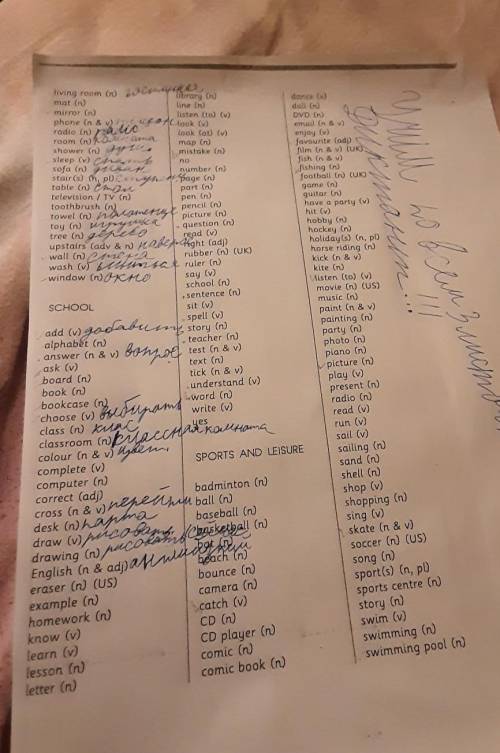 living room (n) гостиная
mat (n)
mirror (n)
phone (n & v)
radio (n) радио
room (n) комната
shower (n) душ
sleep (v) спать
sofa (n) диван
stair(s) (n, pl)
table (n) стол
television / TV (n)
toothbrush (n)
towel (n) полотенце
toy (n) игрушка
tree (n) дерево
upstairs (adv & n) наверх
wall (n) стена
wash (v)
window (n) окно
SCHOOL
add (v) добавить
alphabet (n)
answer (n & v) вопрос
ask (v)
board (n)
book (n)
bookcase (n)
choose (v) выбирать
class (n) клас
classroom (n) классная комната
colour (n & v) цвет
complete (v)
computer (n)
correct (adj)
cross (n & v) перейти
desk (n) парта
draw (v) рисовать
drawing (n) рисовать
English (n & adj) английский
eraser (n) (US)
example (n)
homework (n)
know (v)
learn (v)
lesson (n)
letter (n)
library (n)
line (n)
listen (to) (v)
look (v)
look (at) (v)
map (n)
mistake (n)
no
number (n)
page (n)
part (n)
pen (n)
pencil (n)
picture (n)
question (n)
read (v)
right (adj)
rubber (n) (UK)
ruler (n)
say (v)
school (n)
sentence (n)
sit (v)
spell (v)
story (n)
teacher (n)
test (n & v)
text (n)
tick (n & v)
understand (v)
word (n)
write (v)
yes
SPORTS AND LEISURE
badminton (n)
ball (n)
baseball (n)
basketball (n)
bat (n)
beach (n)
bounce (n)
camera (n)
catch (v)
CD (n)
CD player (n)
comic (n)
comic book (n)
dance (v)
doll (n)
DVD (n)
email (n & v)
enjoy (v)
favourite (adj)
film (n & v) (UK)
fish (n & v)
fishing (n)
football (n) (UK)
game (n)
guitar (n)
have a party (v)
hit (v)
hobby (n)
hockey (n)
holiday(s) (n, pl)
horse riding (n)
kick (n & v)
kite (n)
listen (to) (v)
movie (n) (US)
music (n)
paint (n & v)
painting (n)
party (n)
photo (n)
piano (n)
picture (n)
play (v)
present (n)
radio (n)
read (v)
run (v)
sail (v)
sailing (n)
sand (n)
shell (n)
shop (v)
shopping (n)
sing (v)
skate (n & v)
soccer (n) (US)
song (n)
sport(s) (n, pl)
sports centre (n)
story (n)
swim (v)
swimming (n)
swimming pool (n)
по всем 3 !!!